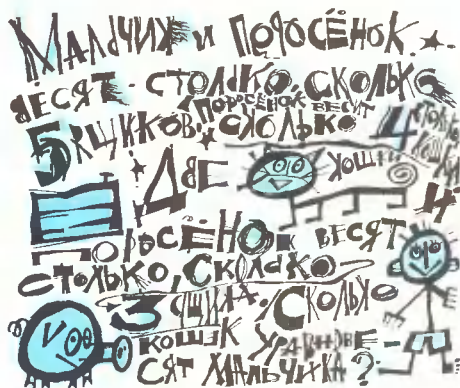 Мальчик и поросёнок
весят столько, сколько
5 ящиков. Поросёнок весит
столько, сколько 4 кошки
Две кошки и
поросёнок весят
столько, сколько
3 ящика. Сколько
кошек уравнове-
сят мальчика?